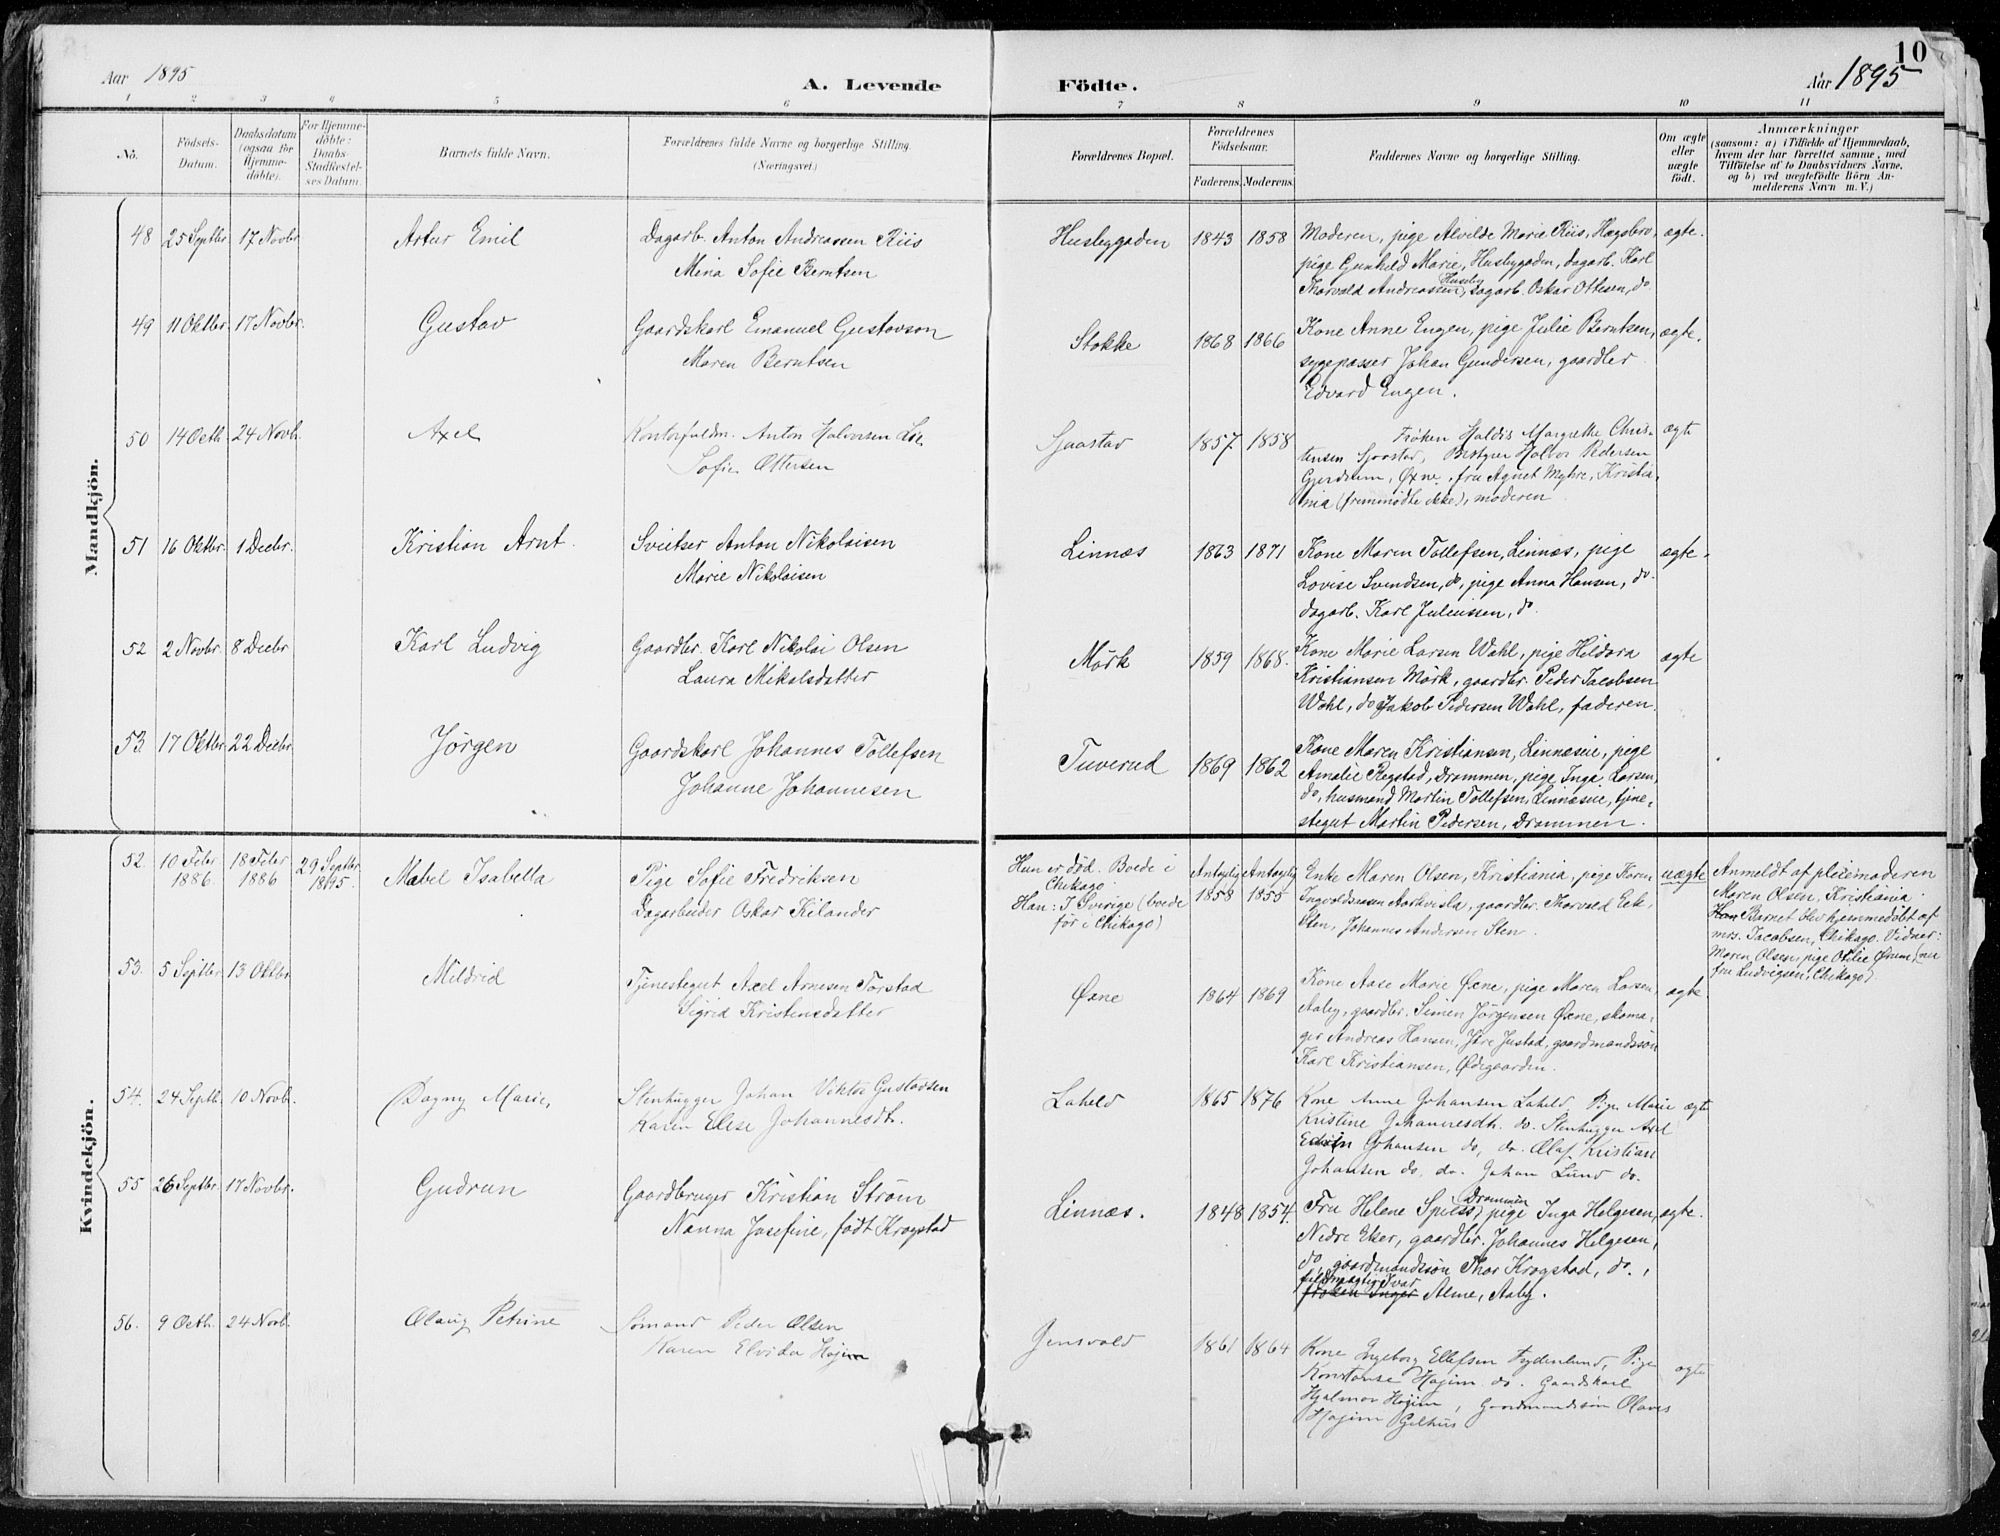 Aar 1895
A. Levende
Födte.
10
Aar 1895
1 2 3 4 5 6 7 8 9 10 11
Nô.
Födsels-
Datum.
Daabsdatum
(ogsaa for
Hjemme-
döbte).
For Hjemme-
döbte:
Daabs-
Stadfæstel-
ses Datum.
Barnets fulde Navn.
Forældrenes fulde Navne og borgerlige Stilling.
(Næringsvei.)
Forældrenes Bopæl.
Forældrenes
Födselsaar.
Faderens. Moderens.
Faddernes Navne og borgerlige Stilling.
Om ægte
eller
uægte
födt.
Anmærkninger
(saasom: a) i Tilfælde af Hjemmedaab,
hvem der har forrettet samme, med
Tilföielse af to Daabsvidners Navne,
og b) ved uægtefödte Börn An-
melderens Navn m. V.)
Mandkjön.
48 25 Septbr 17 Novbr Artur Emil
Dagarb. Anton Andreassen Riis
Mina Sofie Berntsen
Husbygaden 1843 1858
Moderen, pige Alvilde Marie Riis, Hægsbro,
pige Gunhild Marie, Husbygaden, dagarb. Karl
Thorvald Andreassen, Husby, dagarb. Oskar Ottesen, do
ægte.
49 11 Oktbr. 17 Novbr. Gustav
Gaardskarl Emanuel Gustavson
Maren Berntsen
Stokke 1868 1866
Kone Anne Engen, pige Julie Berntsen,
sygepasser Johan Gundersen, gaardbr
Edvard Engen.
ægte.
50 14 Octb. 24 Novb. Axel
Kontorfuldm. Anton Halvorsen Lie
Sofie Ottersen
Sjaastad 1857 1858
Frøken Haldis Margrethe Chris-
tensen Sjaastad, Bestyrer Halvor Pedersen
Gjerdrum, Øxne, fru Agnet Myhre, Kristia-
nia (fremmødte ikke), moderen
ægte
51 16 Oktbr. 1 Decbr. Kristian Arnt.
Svietser Anton Nikolaisen
Marie Nikolaisen
Linnæs 1863 1871
Kone Maren Tollefsen, Linnæs, pige
Lovise Svendsen, do, pige Anna Hansen, do.
dagarb. Karl Juliussen, do.
ægte.
52 2 Novbr. 8 Decbr Karl Ludvig
Gaardbr. Karl Nikolai Olsen
Laura Mikalsdatter
Mørk 1859 1868.
Kone Marie Larsen Wahl, pige Hildora
Kristiansen Mørk, gaardbr. Peder Jacobsen
Wahl, do Jakob Pedersen Wahl, faderen.
ægte
53. 17 Oktbr. 22 Decbr. Jørgen
Gaardskarl Johannes Tollefsen
Johanne Johannesen
Tuverud 1869 1862
Kone Maren Kristiansen, Linnæseie, pige
Amalie Regstad, Drammen, pige Inga Larsen,
do, husmand Martin Tollefsen, Linnæseie, tjene-
stegut Martin Pedersen, Drammen.
ægte
Kvindekjön.
52. 10 Febr 1886. 18 Febr 1886 29 Septbr 1895. Mabel Isabella
Pige Sofie Fredriksen
Dagarbeider Oskar Kilander
Hun er død. Boede i
Chikago.
Han: I Sverige (boede
før i Chikago)
Antagelig 1858 Antagelig 1855
Enke Maren Olsen, Kristiania, pige Karen
Ingvoldsensen Aarkvisla, gaardbr. Thorvald Eek,
Sten, Johannes Andersen Sten.
uægte
Anmeldt af pleiemoderen
Maren Olsen, Kristiania
Barnet blev hjemmedøbt af
mrs. Jacobsen, Chikago. Vidner:
Maren Olsen, pige Otilie Ørum, (nu
fru Ludvigsen, Chikago)
53. 5 Septbr. 13 Oktbr. Mildrid
Tjenestegut Axel Arnesen Torstad
Sigrid Kristensdatter
Øxne 1864 1869
Kone Aase Marie Øxne, pige Maren Larsen,
Aaby, gaardbr. Simen Jørgensen Øxne, skoma-
ger Andreas Hansen, Justad, gaardmandssøn
Karl Kristiansen, Ødegaarden.
ægte.
54. 24 Septb. 10 Novb. Dagny Marie,
Stenhugger Johan Viktor Gustavsen
Karen Elise Johannesdt.
Laheld 1865 1876
Kone Anne Johansen Laheld, Pige Marie
Kristine Johannesdt. do. Stenhugger Axel
Edvin Johansen do, do. Olaf Kristian
Johansen do, do. Johan Lund do.
ægte
55 26 Septbr. 17 Novbr. Gudrun
Gaardbruger Kristian Strøm
Nanna Josefine, født Krogstad
Linnæs. 1848 1854.
Fru Helene Spiess, Drammen, pige Inga Helgesen,
Nedre Eker, gaardbr. Johannes Helgesen,
do, gaardmandssøn Thor Krogstad, do.,
fuldmægtig Ivar
frøken Inger Alme, Aaby.
ægte.
56. 9 Octb. 24 Novb. Olaug Petrine
Sømand Peder Olsen
Karen Elvida Hajem
Jensvold 1861 1864
Kone Ingeborg Ellefsen Frydenlund, Pige
Konstanse Hajem do. Gaardskarl
Hjalmar Hajem, Gaardmandssøn Olaves
Hajem Gilhus
ægte